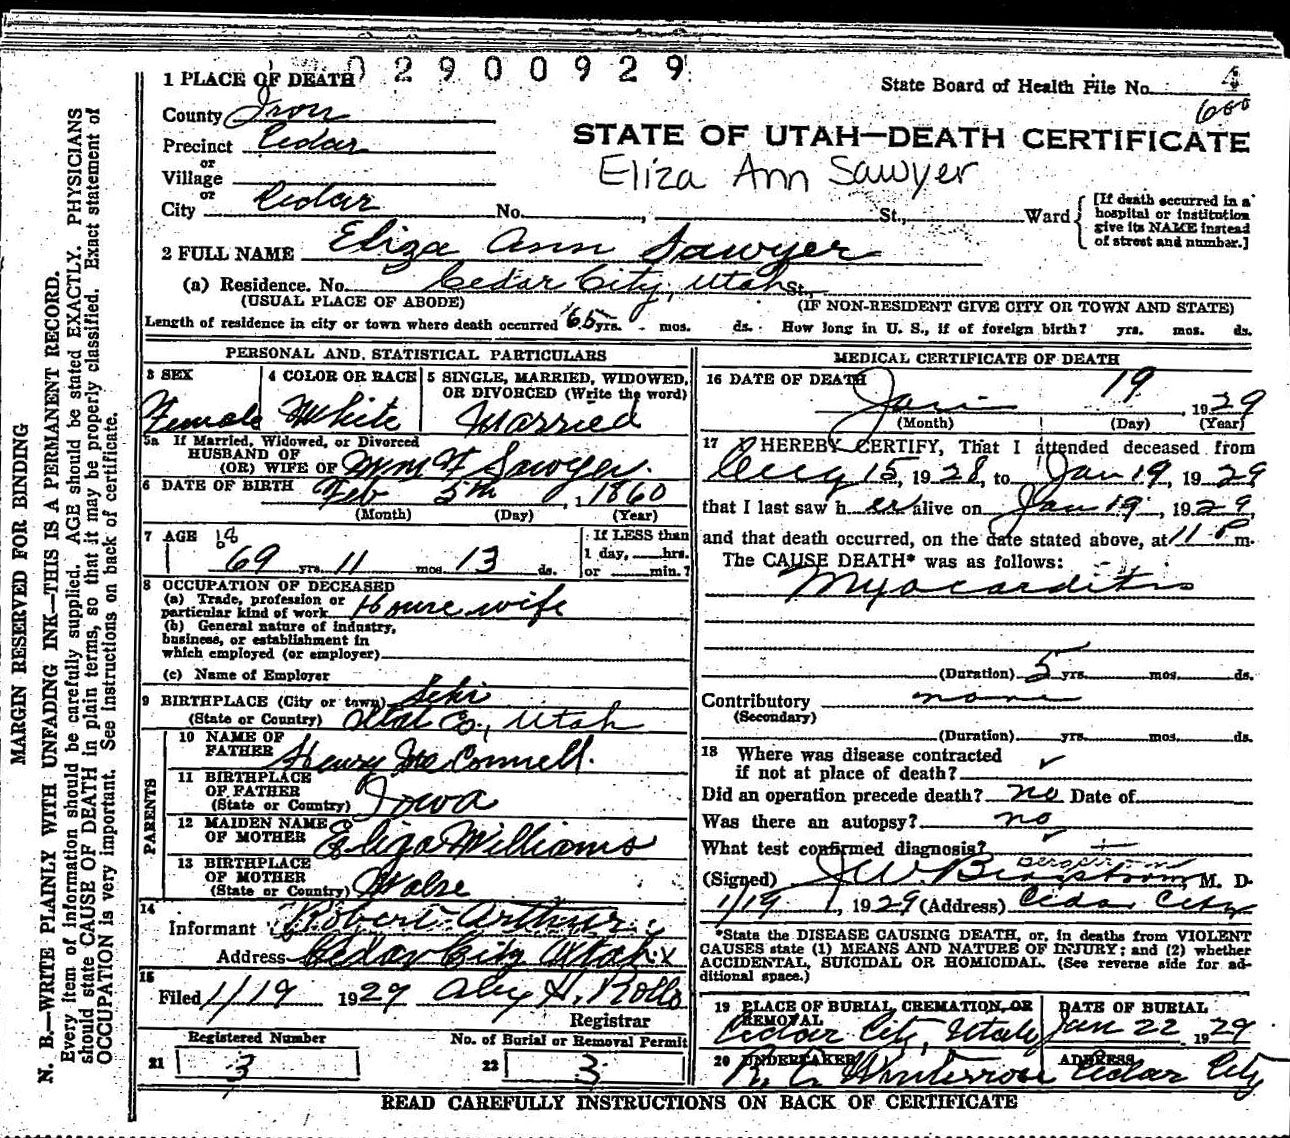 02900929
1 PLACE OF DEATH
State Board of Health File No. 4
600
County Iron
STATE OF UTAH—DEATH CERTIFICATE
Precinct Cedar
or
Eliza Ann Sawyer
Village
or
City Cedar No. , St., Ward
[If death occurred in a hospital or institution give its NAME instead of street and number.]
2 FULL NAME Eliza Ann Sawyer
(a) Residence. No. Cedar City, Utah St.,
(USUAL PLACE OF ABODE) (IF NON-RESIDENT GIVE CITY OR TOWN AND STATE)
Length of residence in city or town where death occurred 65 yrs. - mos. ds. How long in U. S., if of foreign birth? yrs. mos. ds.
PERSONAL AND STATISTICAL PARTICULARS
3 SEX 4 COLOR OR RACE 5 SINGLE, MARRIED, WIDOWED,
OR DIVORCED (Write the word)
Female White Married
5a If Married, Widowed, or Divorced
HUSBAND OF
(OR) WIFE OF Wm F Sawyer.
6 DATE OF BIRTH Feb 5th, 1860
(Month) (Day) (Year)
7 AGE 68 If LESS than
69 yrs. 11 mos. 13 ds. 1 day, hrs.
or min.?
8 OCCUPATION OF DECEASED
(a) Trade, profession or
particular kind of work House wife
(b) General nature of industry,
business, or establishment in
which employed (or employer)
(c) Name of Employer
9 BIRTHPLACE (City or town) Lehi
(State or Country) Utah Co., Utah
PARENTS
10 NAME OF
FATHER Henry McConnell.
11 BIRTHPLACE
OF FATHER
(State or Country) Iowa
12 MAIDEN NAME
OF MOTHER Eliza Williams
13 BIRTHPLACE
OF MOTHER
(State or Country) Walse
14
Informant Robert Arthur
Address Cedar City Utah x
15
Filed 1/19 1929 Alex H. Rollo
Registrar
Registered Number No. of Burial or Removal Permit
21 3 22 3
MEDICAL CERTIFICATE OF DEATH
16 DATE OF DEATH
Jan 19, 1929
(Month) (Day) (Year)
17 I HEREBY CERTIFY, That I attended deceased from
Aug 15, 1928, to Jan 19, 1929
that I last saw her alive on Jan 19, 1929,
and that death occurred, on the date stated above, at 11 P m.
The CAUSE DEATH* was as follows:
Myocarditis
(Duration) 5 yrs. mos. ds.
Contributory none
(Secondary)
(Duration) yrs. mos. ds.
18 Where was disease contracted
if not at place of death? ✓
Did an operation precede death? no Date of
Was there an autopsy? no
What test confirmed diagnosis?
Bergstrom
(Signed) J W Bergstrom, M. D.
1/19, 1929 (Address) Cedar City
*State the DISEASE CAUSING DEATH, or, in deaths from VIOLENT
CAUSES state (1) MEANS AND NATURE OF INJURY; and (2) whether
ACCIDENTAL, SUICIDAL OR HOMICIDAL. (See reverse side for ad-
ditional space.)
19 PLACE OF BURIAL, CREMATION, OR DATE OF BURIAL
REMOVAL
Cedar City, Utah Jan 22 1929
20 UNDERTAKER ADDRESS
Cedar City
READ CAREFULLY INSTRUCTIONS ON BACK OF CERTIFICATE
MARGIN RESERVED FOR BINDING
N. B.—WRITE PLAINLY WITH UNFADING INK—THIS IS A PERMANENT RECORD.
Every item of information should be carefully supplied. AGE should be stated EXACTLY. PHYSICIANS
should state CAUSE OF DEATH in plain terms, so that it may be properly classified. Exact statement of
OCCUPATION is very important. See instructions on back of certificate.